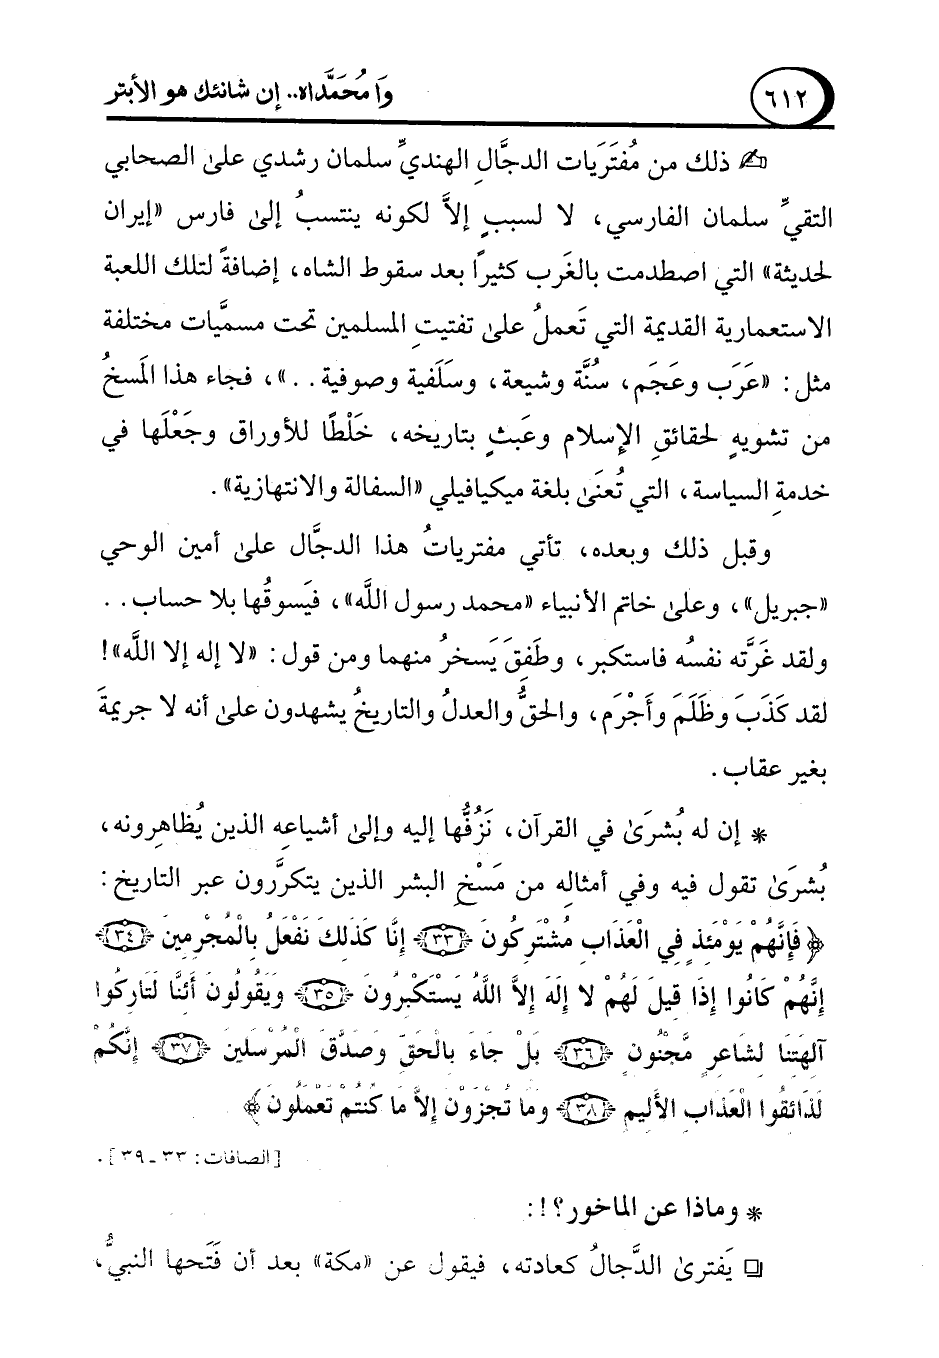 ٦١٢
وَا مُحَمَّدَاه.. إن شانئك هو الأبتر
ذلك من مُفتَرَيات الدجَّالِ الهنديِّ سلمان رشدي على الصحابي
التقيِّ سلمان الفارسي، لا لسببٍ إلاَّ لكونه ينتسبُ إلى فارس «إيران
لحديثة» التي اصطدمت بالغَرب كثيرًا بعد سقوط الشاه، إضافةً لتلك اللعبة
الاستعمارية القديمة التي تَعملُ على تفتيتِ المسلمين تحت مسمَّيات مختلفة
مثل: «عَرَب وعَجَم، سُنَّة وشيعة، وسَلَفية وصوفية..»، فجاء هذا المَسخُ
من تشويهٍ لحقائقِ الإسلام وعَبثٍ بتاريخه، خَلْطًا للأوراق وجَعْلَها في
خدمةِ السياسة، التي تُعنَى بلغة ميكيافيلي «السفالة والانتهازية».
وقبل ذلك وبعده، تأتي مفترياتُ هذا الدجَّال على أمين الوحي
«جبريل»، وعلى خاتم الأنبياء «محمد رسول اللَّه»، فيَسوقُها بلا حساب..
ولقد غَرَّته نفسُه فاستكبر، وطَفِقَ يَسخرُ منهما ومن قول: «لا إله إلا اللَّه»!
لقد كَذَبَ وظَلَمَ وأَجْرَم، والحقُّ والعدلُ والتاريخُ يشهدون على أنه لا جريمةَ
بغير عقاب.
* إن له بُشرَى في القرآن، نَزُفُّها إليه وإلى أشياعِه الذين يُظاهِرونه،
بُشرَى تقول فيه وفي أمثالِه من مَسْخِ البشر الذين يتكرَّرون عبر التاريخ:
﴿فَإِنَّهُمْ يَوْمَئِذٍ فِي الْعَذَابِ مُشْتَرِكُونَ ﴿٣٣﴾ إِنَّا كَذَلِكَ نَفْعَلُ بِالْمُجْرِمِينَ ﴿٣٤﴾
إِنَّهُمْ كَانُوا إِذَا قِيلَ لَهُمْ لا إِلَهَ إِلاَّ اللَّهُ يَسْتَكْبِرُونَ ﴿٣٥﴾ وَيَقُولُونَ أَئِنَّا لَتَارِكُوا
آلِهَتِنَا لِشَاعِرٍ مَّجْنُونٍ ﴿٣٦﴾ بَلْ جَاءَ بِالْحَقِّ وَصَدَّقَ الْمُرْسَلِينَ ﴿٣٧﴾ إِنَّكُمْ
لَذَائِقُوا الْعَذَابِ الأَلِيمِ ﴿٣٨﴾ وَمَا تُجْزَوْنَ إِلاَّ مَا كُنتُمْ تَعْمَلُونَ﴾
[الصافات: ٣٣ - ٣٩].
* وماذا عن الماخور؟!:
❏ يَفترِى الدَّجالُ كعادته، فيقول عن «مكة» بعد أن فَتَحها النبيُّ،